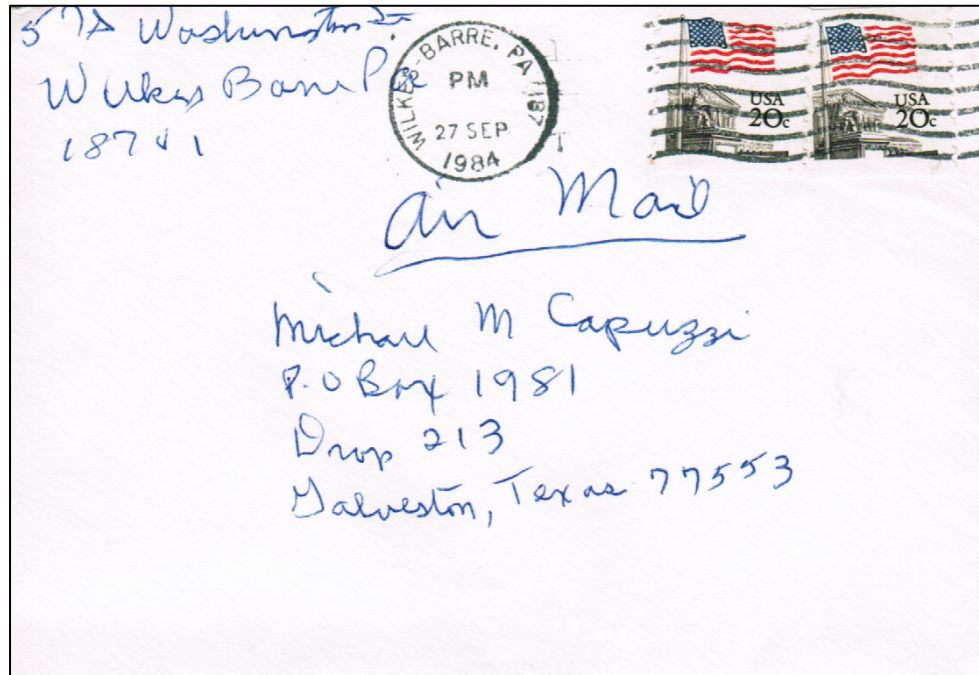 57A Washington St
Wilkes Barre Pa
18701
WILKES-BARRE, PA 187
PM
27 SEP
1984
USA
20c
USA
20c
air Mail
Michael M Capuzzi
P.O Box 1981
Drop 213
Galveston, Texas 77553